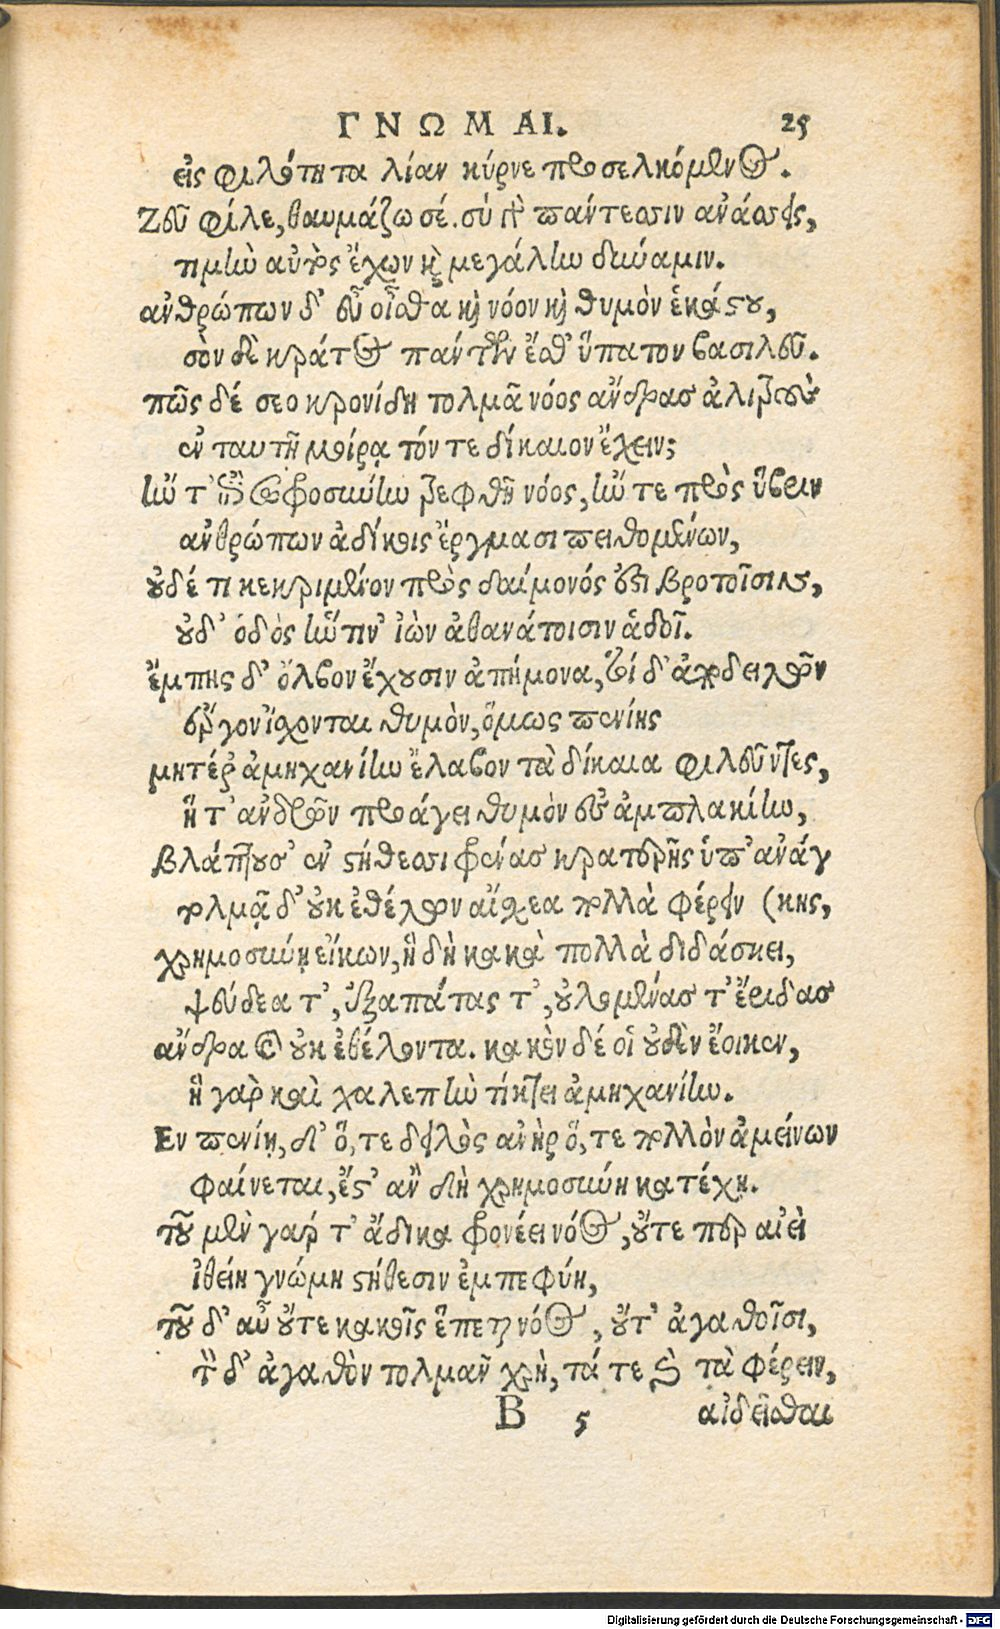 ΓΝΩΜΑΙ. 25
εἰς φιλότητα λίαν κύρνε προσελκόμενος.
Ζεῦ φίλε, θαυμάζω σέ. σὺ γὰρ πάντεσσιν ἀνάσσεις,
τιμὴν αὐτὸς ἔχων καὶ μεγάλην δύναμιν.
ἀνθρώπων δ' εὖ οἶσθα καὶ νόον καὶ θυμὸν ἑκάστου,
σὸν δὲ κράτος πάντων ἔσθ' ὕπατον βασιλεῦ.
πῶς δέ σεο κρονίδη τολμᾶ νόος ἄνδρας ἀλιτροὺς
ἐν ταυτῇ μοίρᾳ τόν τε δίκαιον ἔχειν;
ἤν τ' ἐπὶ σωφροσύνην τρεφθῇ νόος, ἤν τε πρὸς ὕβριν
ἀνθρώπων ἀδίκοις ἔργμασι πειθομένων,
οὐδέ τι κεκριμένον πρὸς δαίμονός ἐστι βροτοῖσιν,
οὐδ' ὁδὸς ἥντιν' ἰὼν ἀθανάτοισιν ἅδοι.
ἔμπης δ' ὄλβον ἔχουσιν ἀπήμονα, τοὶ δ' ἀπὸ δειλῶν
ἔργον ἴσχονται θυμὸν, ὅμως πενίης
μητέρ' ἀμηχανίην ἔλαβον τὰ δίκαια φιλεῦντες,
ἥ τ' ἀνδρῶν προάγει θυμὸν ἐς ἀμπλακίην,
βλάπτουσ' ἐν στήθεσσι φρένας κρατερῆς ὑπ' ἀνάγ
τολμᾷ δ' οὐκ ἐθέλων αἴσχεα πολλὰ φέρειν (κης,
χρημοσύνῃ εἴκων, ἣ δὴ κακὰ πολλὰ διδάσκει,
ψεύδεα τ', ἐξαπάτας τ', οὐλομένας τ' ἔριδας
ἄνδρα καὶ οὐκ ἐθέλοντα. κακὸν δέ οἱ οὐδὲν ἔοικεν,
ἣ γὰρ καὶ χαλεπὴν τίκτει ἀμηχανίην.
Εν πενίῃ, δ' ὅ, τε δειλὸς ἀνὴρ ὅ, τε πολλὸν ἀμείνων
φαίνεται, ἔστ' ἂν δὴ χρημοσύνη κατέχῃ.
τοῦ μὲν γάρ τ' ἄδικα φρονέει νόος, οὔτε περ αἰεὶ
ἰθείη γνώμη στήθεσιν ἐμπεφύη,
τοῦ δ' αὖ οὔτε κακοῖς ἕπεται νόος, οὔτ' ἀγαθοῖσι,
τὸν δ' ἀγαθὸν τολμᾶν χρὴ, τά τε καὶ τὰ φέρειν,
B 5 αἰδεῖσθαι
Digitalisierung gefördert durch die Deutsche Forschungsgemeinschaft - DFG